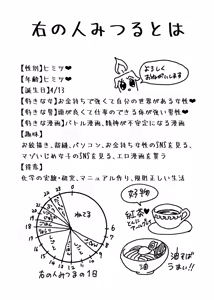 右の人みつるとは
よろしく
おねがいします
【性別】ヒミツ♥
【年齢】ヒミツ♥
【誕生日】4/13
【好きな女】お金持ちで強くて自分の世界がある女性♥
【好きな男】頭が良くて仕事のできる体が強い男性♥
【好きな漫画】バトル漫画、精神が不安定になる漫画
【趣味】
お絵描き、裁縫、パソコン、お金持ち女性のSNSを見る、
マゾいじめな子のSNSを見る、エロ漫画を買う
【特意】
化学の実験・研究、マニュアル作り、規則正しい生活
ねてる
右の人みつるの1日
好物
紅茶♥
油
油そば
うまい!!